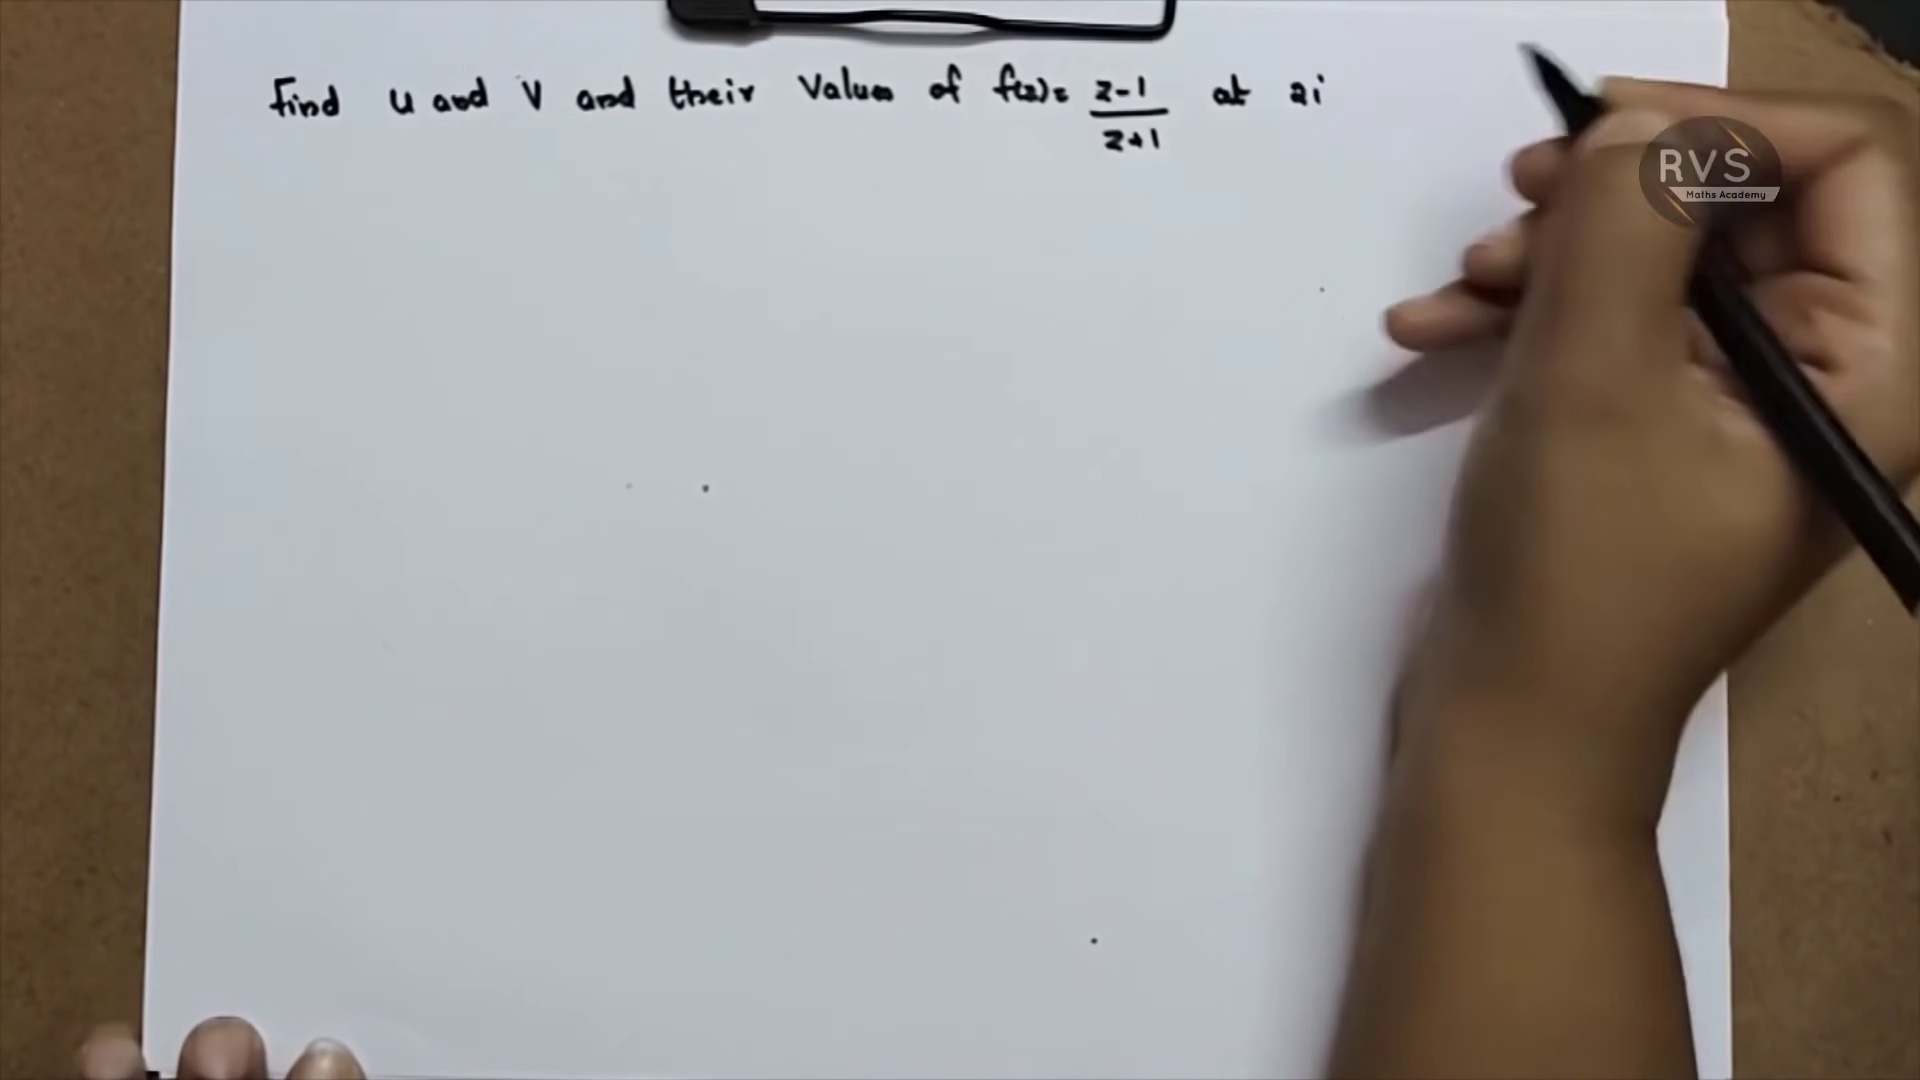 Find u and v and their Values of f(z)= z-1 at 2i
z+1
RVS
Maths Academy